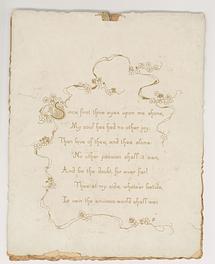 Since first thine eyes upon me shone,
My soul has had no other joy,
Than love of thee, and thee alone:
No other passion shall it own,
And be the doubt for ever far!
Thee at my side, whatever betide,
the envious world shall